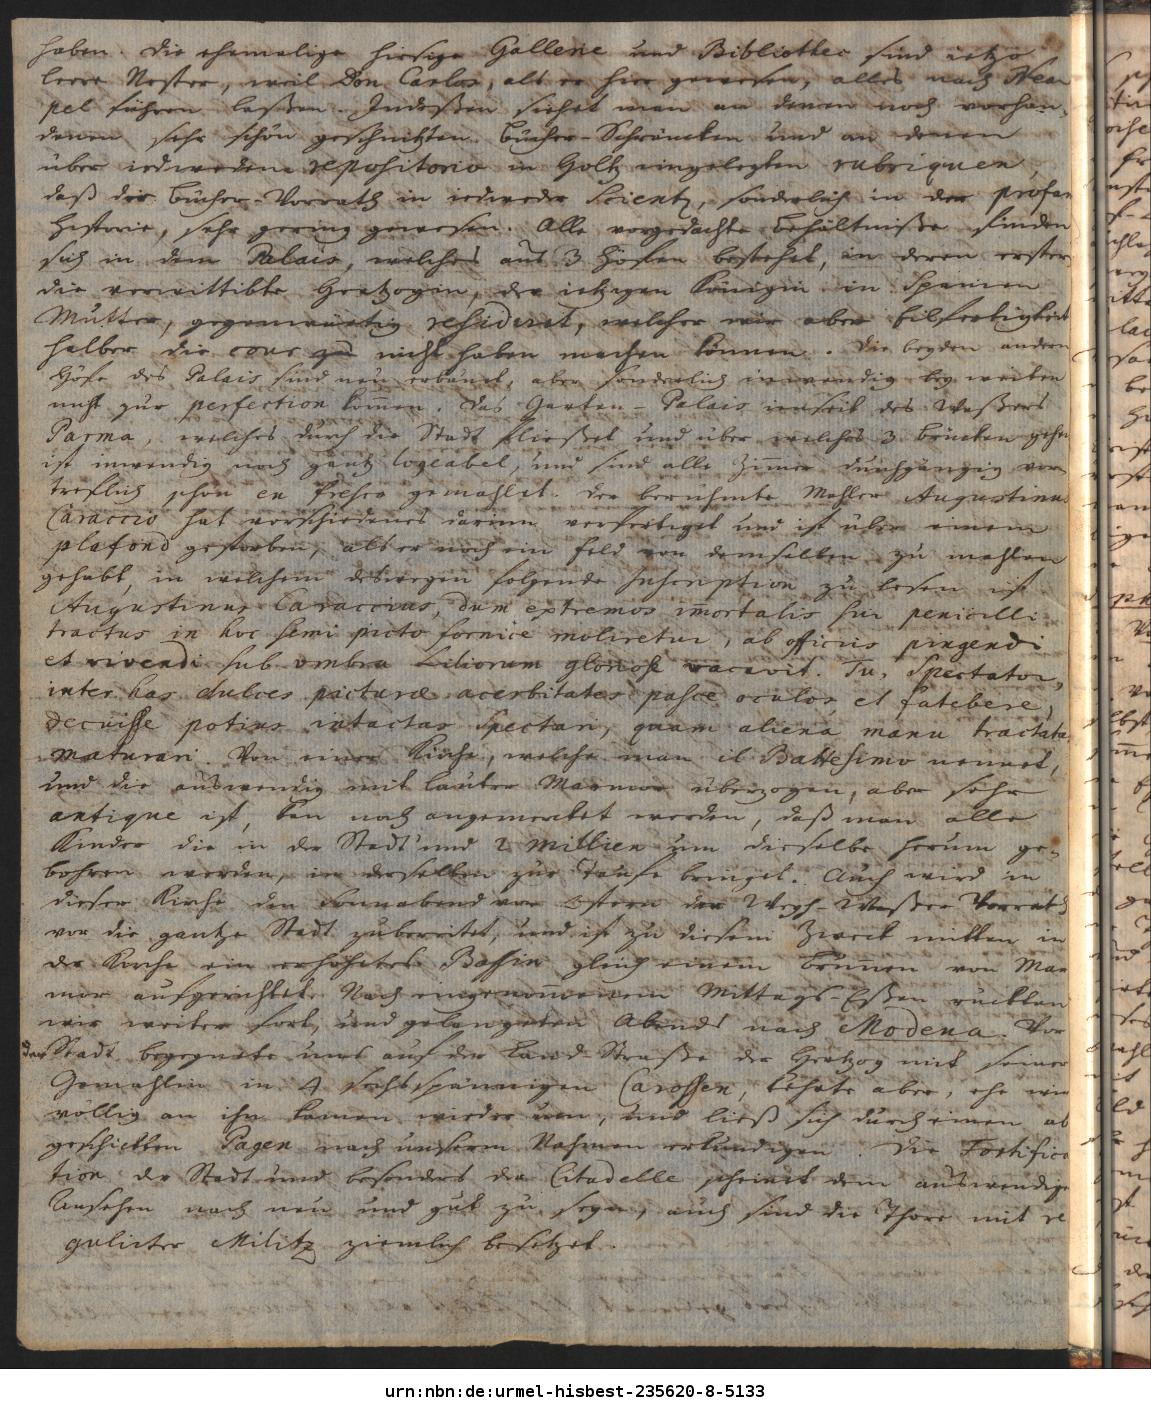 haben. Die ehemalige hiesige Gallerie und Bibliothec sind ietzo
leere Nester, weil Don Carlos, als er hier gewesen, alles nach Nea-
pel führen laßen. Indeßen siehet man an denen noch vorhan-
denen sehr schön geschnitzten Bücher-Schräncken und an denen
über iedwedem repositorio in Holtz eingelegten rubriquen,
daß der Bücher-Vorrath in iedweder Scientz, sonderlich in der profan
Historie, sehr gering gewesen. Alle vorgedachte Behältniße finden
sich in dem Palais, welches aus 3 Höfen bestehet, in deren ersten
die verwittibte Hertzogin, der ietzigen Königin in Spanien
Mutter, gegenwärtig residiret, welcher wir aber Eilfertigkeit
halber die cour nicht haben machen können. Die beyden andern
Höfe des Palais sind neu erbauet, aber sonderlich inwendig bey weiten
nicht zur perfection kom̅en. Das Garten-Palais ienseit des Waßers
Parma, welches durch die Stadt fließet und über welches 3 Brücken gehen
ist inwendig noch gantz logeabel, und sind alle Zim̅er durchgängig vor-
treflich schön en fresco gemahlet. Der berühmte Mahler Augustinus
Caraccio hat verschiedenes darinn verfertiget und ist über einem
plafond gestorben, als er noch ein Feld von demselben zu mahlen
gehabt, in welchem deswegen folgende Inscription zu lesen ist
Augustinus Caraccius, dum extremos im̅ortalis sui penicilli
tractus in hoc semi picto fornice moliretur, ab officiis pingendi
et vivendi sub umbra Liliorum gloriose vacavit. Tu, Spectator,
inter has dulces picturæ acerbitates pasce oculos et fatebere,
decuisse potius intactas Spectari, quam aliena manu tractatas
maturari. Von einer Kirche, welche man il Battesimo nennet,
und die auswendig mit lauter Marmor überzogen, aber sehr
antique ist, kan noch angemercket werden, daß man alle
Kinder die in der Stadt und 2 Millien um dieselbe herum ge-
bohren werden, in derselben zur Taufe bringet. Auch wird in
dieser Kirche den Sonnabend vor Ostern der Weyh-Waßer Vorrath
vor die gantze Stadt zubereitet, und ist zu diesem Zweck mitten in
der Kirche ein erhöhetes Bassin gleich einem Brunnen von Mar-
mor aufgerichtet. Nach eingenom̅enem Mittags-Eßen rückten
wir weiter fort, und gelangeten Abends nach Modena. Vor
der Stadt begegnete uns auf der Land-Straße der Hertzog mit seiner
Gemahlin in 4 sechsspännigen Carossen, kehrte aber, ehe wir
völlig an ihn kamen wieder um, und ließ sich durch einen ab
geschickten Pagen nach unserm Nahmen erkundigen. Die Fortifica
tion der Stadt und besonders der Citadelle scheinet dem auswendigen
Ansehen nach neu und gut zu seyn, auch sind die Thore mit re
gulirter Militz ziemlich besetzet.
urn:nbn:de:urmel-hisbest-235620-8-5133